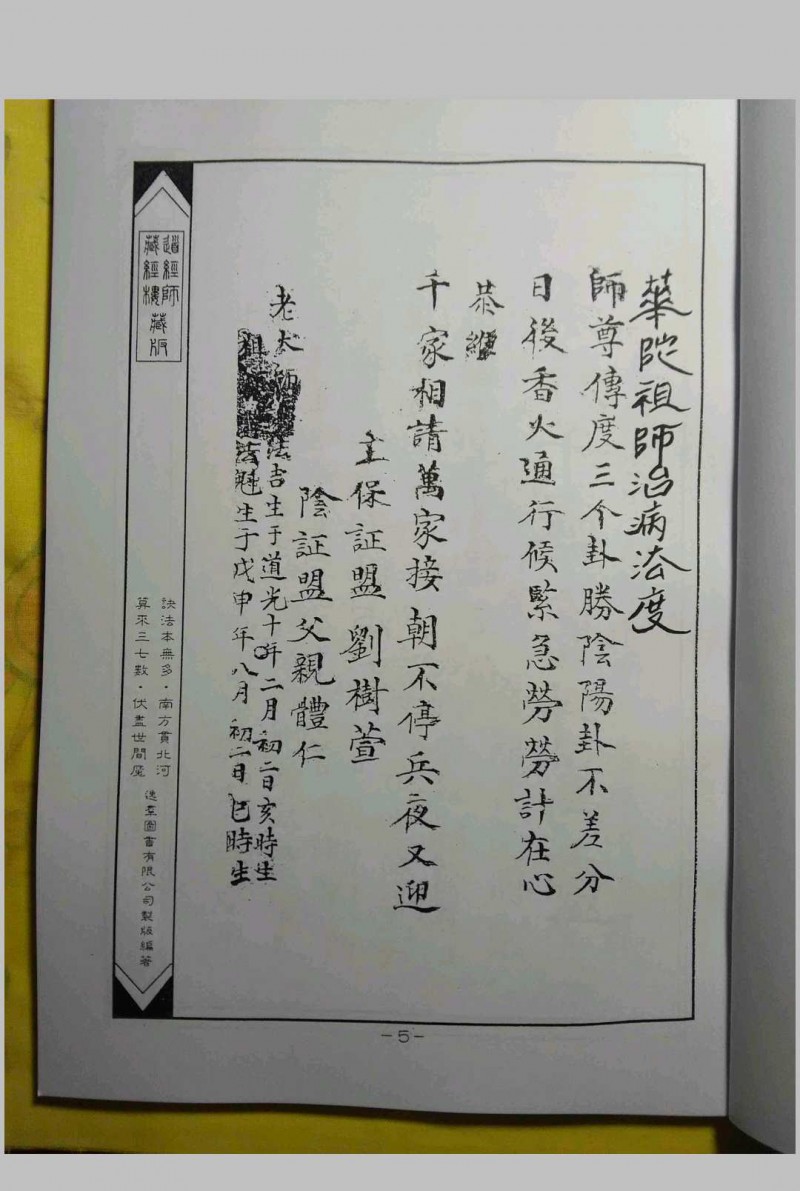 華陀祖師治病法度
師尊傳度三个卦勝陰陽卦不差分
日後香火通行候緊急勞勞計在心
恭維
千家相請萬家接朝不停兵夜又迎
主保証盟劉樹萱
陰証盟父親體仁
老太師法吉生于道光十年二月初二日亥時生
祖法魁生于戊申年八月初二日巳時生
道經師
藏經樓藏版
訣法本無多·南方貫北河
算來三七數·伏盡世間魔
逸羣圖書有限公司製版編著
-5-